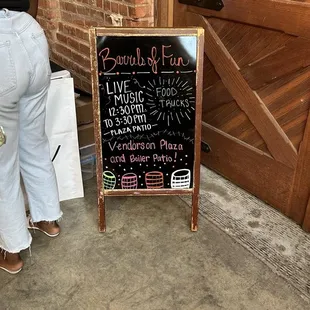 Barrels of Fun
LIVE
MUSIC
12:30PM
TO 3:30PM
PLAZA PATIO
FOOD
TRUCKS
Vendors on Plaza
and Boiler Patio!